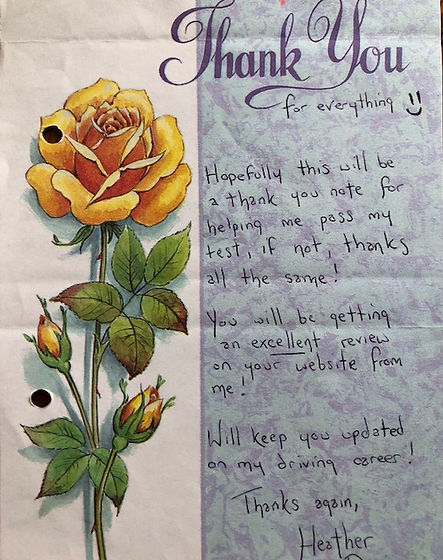 Thank You
for everything !!
Hopefully this will be
a thank you note for
helping me pass my
test, if not, thanks
all the same!
You will be getting
an excellent review
on your website from
me!
Will keep you updated
on my driving career!
Thanks again,
Heather